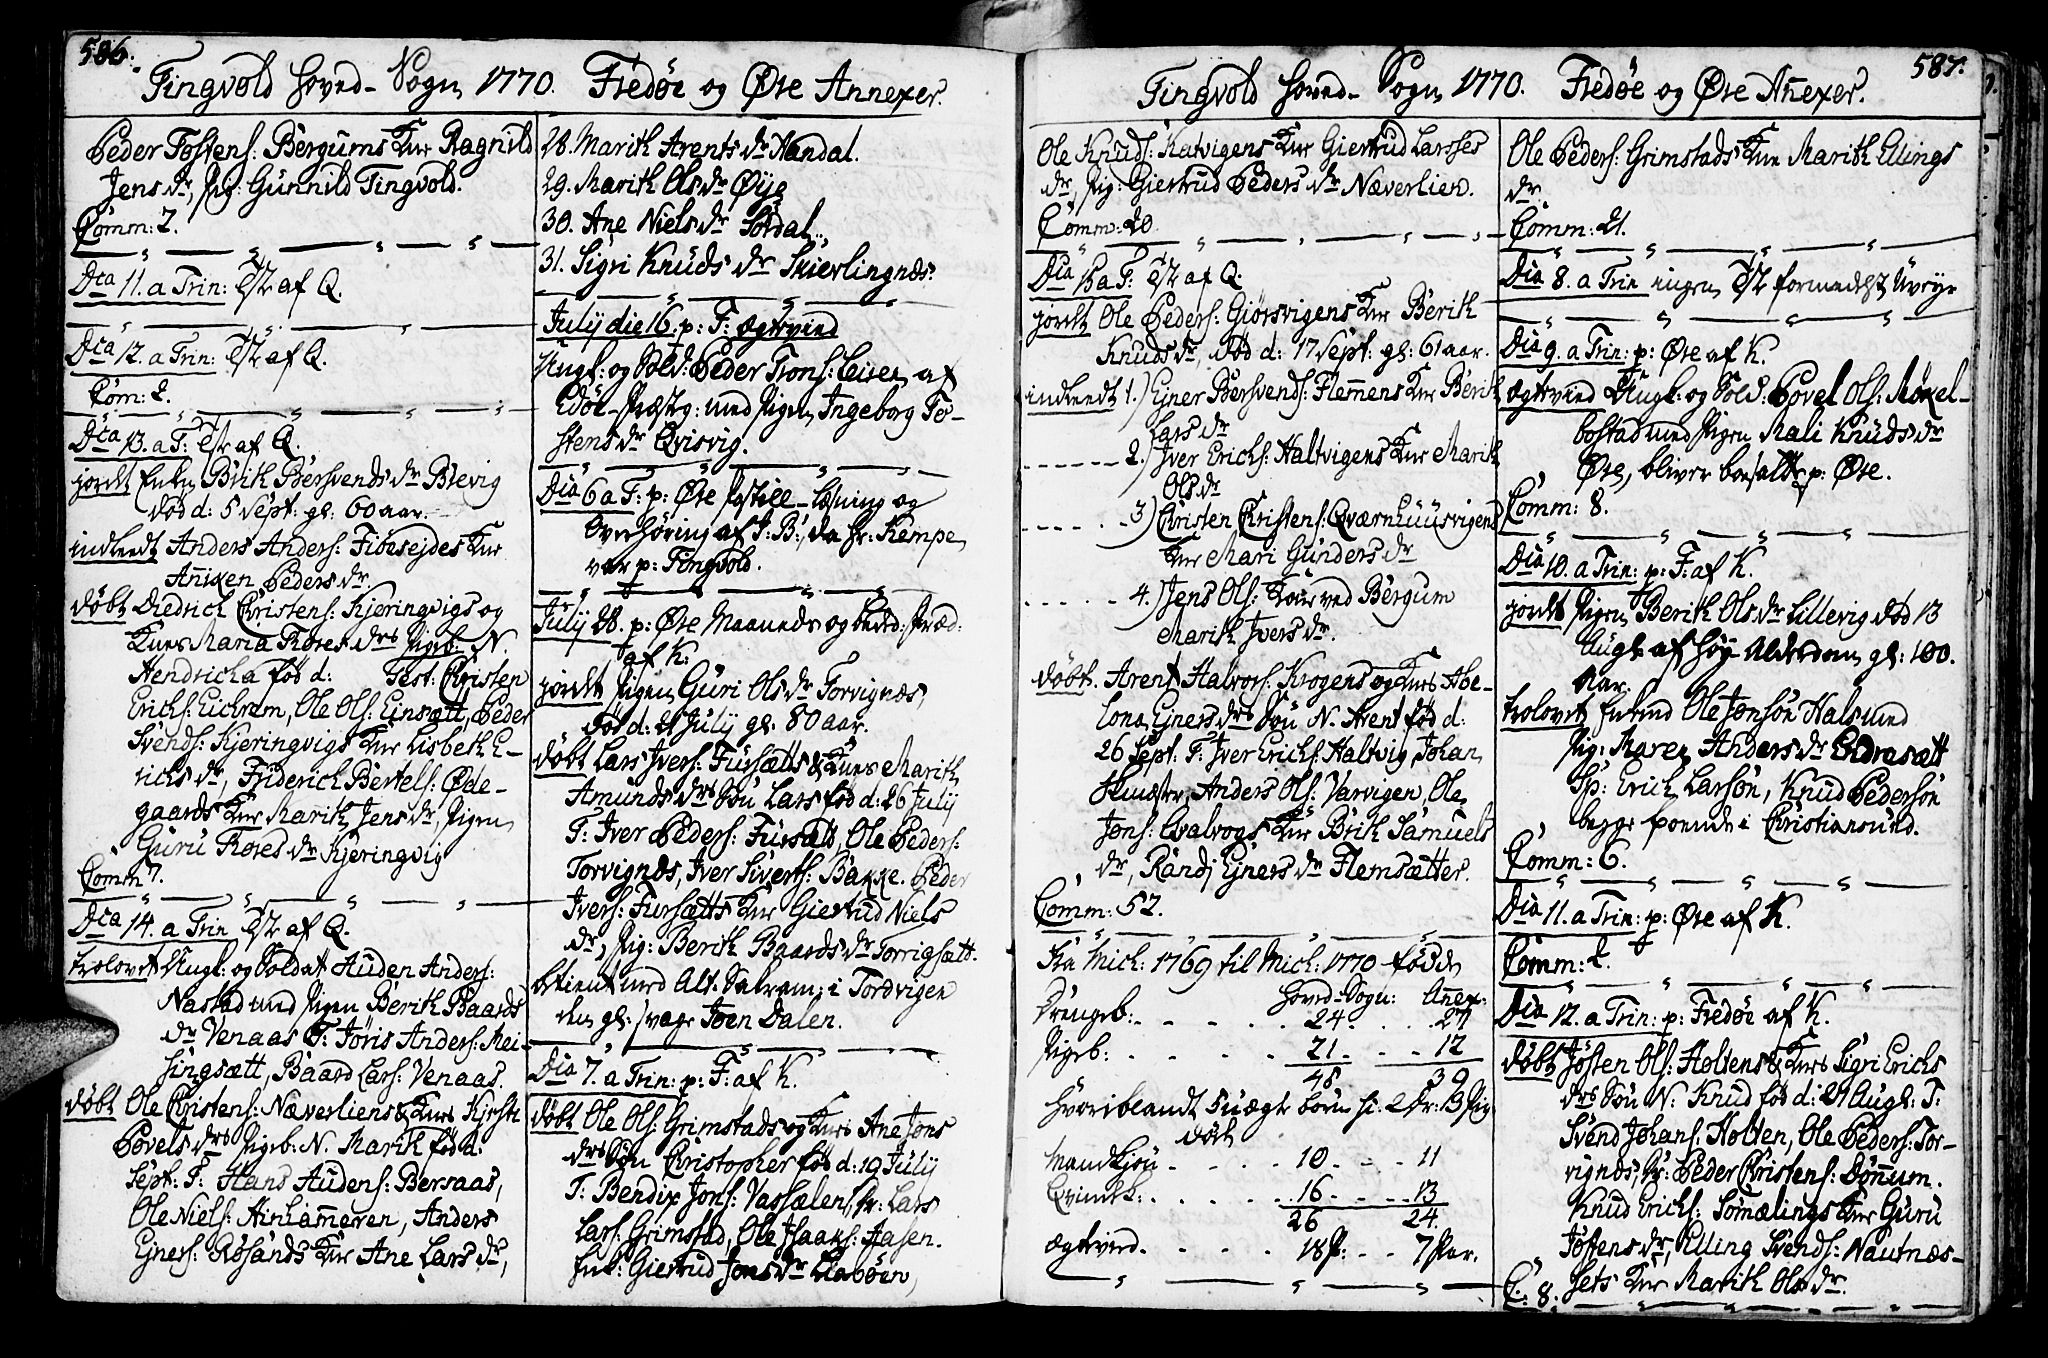 586.
Tingvold Hoved-Sogn 1770. Fredøe og Øre Annexer.
Peder Tostens: Bergums Kue Ragnild
Jens dr, Pig: Gunnild Tingvold.
Comm: 7.
Dca 11. a Trin: Tst af Q.
Dca 12. a Trin: Tst af Q.
Com: 2.
Dca 13. a T: Tst af Q.
jordet Enken Brith Bersvends dr Blevig
død d: 5 Sept: gl: 60 aar.
indleedt Anders Anders: Fibesejdes Kue
Aniken Peders dr.
døbt Diedrich Christens: Kjeringvigs og
Kues Maria Tores drs Pigeb: N.
Hendricha fød d: Test: Christen
Erichs: Eichrem, Ole Ols: Einsætt, Peder
Svends: Kjeringvigs Kue Lisbeth E-
richs dr, Friderich Bertels: Øde-
gaards Kue Marith Jens dr, Pigen
Guru Tores dr Kjeringvig
Comm 7.
Dca 14. a Trin Tst af Q.
trolovet Ungk: og Soldat Auden Anders:
Nastad med Pigen Berith Baards
dr Venaas T: Joris Anders: Mei-
singsætt, Baard Lars: Venaas.
døbt Ole Christens: Næverliens & Kues Kjersti
Povels drs Pigeb: N. Marith fød d:
Sept: T: Hans Audens: Bersaas,
Ole Niels: Ainhameren, Anders
Ejners: Røsands Kue Ane Lars dr,
28. Marith Arents dr Handal.
29. Marith Ols dr Øye
30. Ane Niels dr Sørdal.
31. Sigri Knuds dr Skierlingnds:
July die 16 p: F: ægtevied
Ungk: og Sold: Peder Trons: Leiren af
Edøe-Præsteg: med Pigen Ingeborg To-
stens dr Qvisvig.
Dca 6 a T: p: Øre Postill-Læsning og
Overhøring af J: B:, da Hr: Kempe
var p: Tingvold.
July 28. p: Øre Maaneds og Bered: Præd:
af K:
jordet Pigen Guri Ols dr Torvignæs,
død d: 21 July gl: 80 aar.
døbt Lars Ivers: Fursætts & Kues Marith
Amunds drs Søn Lars fød d: 26 July
T: Iver Peders: Fursætt, Ole Peders:
Torvignds, Iver Siverts: Bakke. Peder
Ivers: Fursætts Kue Giertrud Niels
dr, Pig: Berith Baards dr Torrigsætt.
betient med Alt: Sacram: i Tordvigen
den gl: svage Joen Dalen.
Dca 7. a Trin: p: F: af K.
døbt Ole Ols: Grimstads og Kues Ane Jons
drs Søn Christopher fød d: 19 July
T: Bendix Jons: Vassælen, Dr: Lars
Lars: Grimstad, Ole Isaaks: Aasen.
Enk: Giertrud Jons dr Liabøen,
587.
Tingvold Hoved-Sogn 1770. Fredøe og Øre Anexer.
Ole Knuds: Katvigens Kue Giertrud Larses
dr, Pig: Giertrud Peders dr Næverlien.
Comm: 20.
Dca 15 a T: Tst af Q.
jordet Ole Peders: Giørsvigens Kue Berith
Knuds dr, død d: 17 Sept: gl: 61 aar.
indleedt 1.) Ejner Bersvends: Flemmens Kue Berith
Lars dr
2.) Iver Erichs: Haltvigens Kue Marith
Ols dr
3) Christen Christens: Qværnhuusvigens
Kue Mari Gunders dr
4.) Jens Ols: Kone ved Bergum
Marith Ivers dr.
døbt. Arent Halvors: Krogens og Kues Abe-
lona Ejners drs Søn N. Arent fød d:
26 Sept: T: Iver Erichs: Haltvig, Johan
Skuæster, Anders Ols: Varvigen, Ole
Jons: Qvalvogs Kue Brith Samuels
dr, Randi Ejners dr Flemsætter.
Comm: 52.
Fra Mich: 1769 til Mich: 1770 fødde
Hoved-Sogn: Anex:
Drengeb: 24. 27
Pigeb: 21 12
45 39
Hvoriblandt 5 uægte børn si: 2 dr: 3 Pig
døde
Mandkjøn 10 11
Qvindek: 16 13
26 24.
ægteviede 18 P: 7 Par.
Ole Peders: Grimstads Kue Marith Ellings
dr.
Comm: 21.
Dca 8. a Trin ingen Tst formedelst Uveyr
Dca 9. a Trin: p: Øre af K.
ægteviede Ungk: og Sold: Povel Ols: Møkel-
bostad med Pigen Mali Knuds dr
Øre, bliver boesatt p: Øre.
Comm: 8.
Dca 10. a Trin: p: F: af K.
jordet Pigen Berith Ols dr Lillevig død 13
Aug: af høy Alderdom gl: 100.
Aar.
trolovet Enkemd Ole Jonsøn Hals med
Pig: Maren Anders dr Endresætt
Sp: Erich Larsøn, Knud Pedersøn
begge boende i Christiansund.
Comm: 6.
Dca 11. a Trin: p: Øre af K.
Comm: 2.
Dca 12. a Trin: p: Fredøe af K.
døbt Josten Ols: Holtens & Kues Sigri Erichs
drs Søn N. Knud fød d: 29 Aug: T:
Svend Johans: Holten, Ole Peders: Tor-
vignds, Dr: Peder Christens: Dønnum.
Knud Erichs: Somælings Kue Guru
Jostens dr, Elling Svends: Nautnæs-
sets Kue Marith Ols dr.
C: 8.